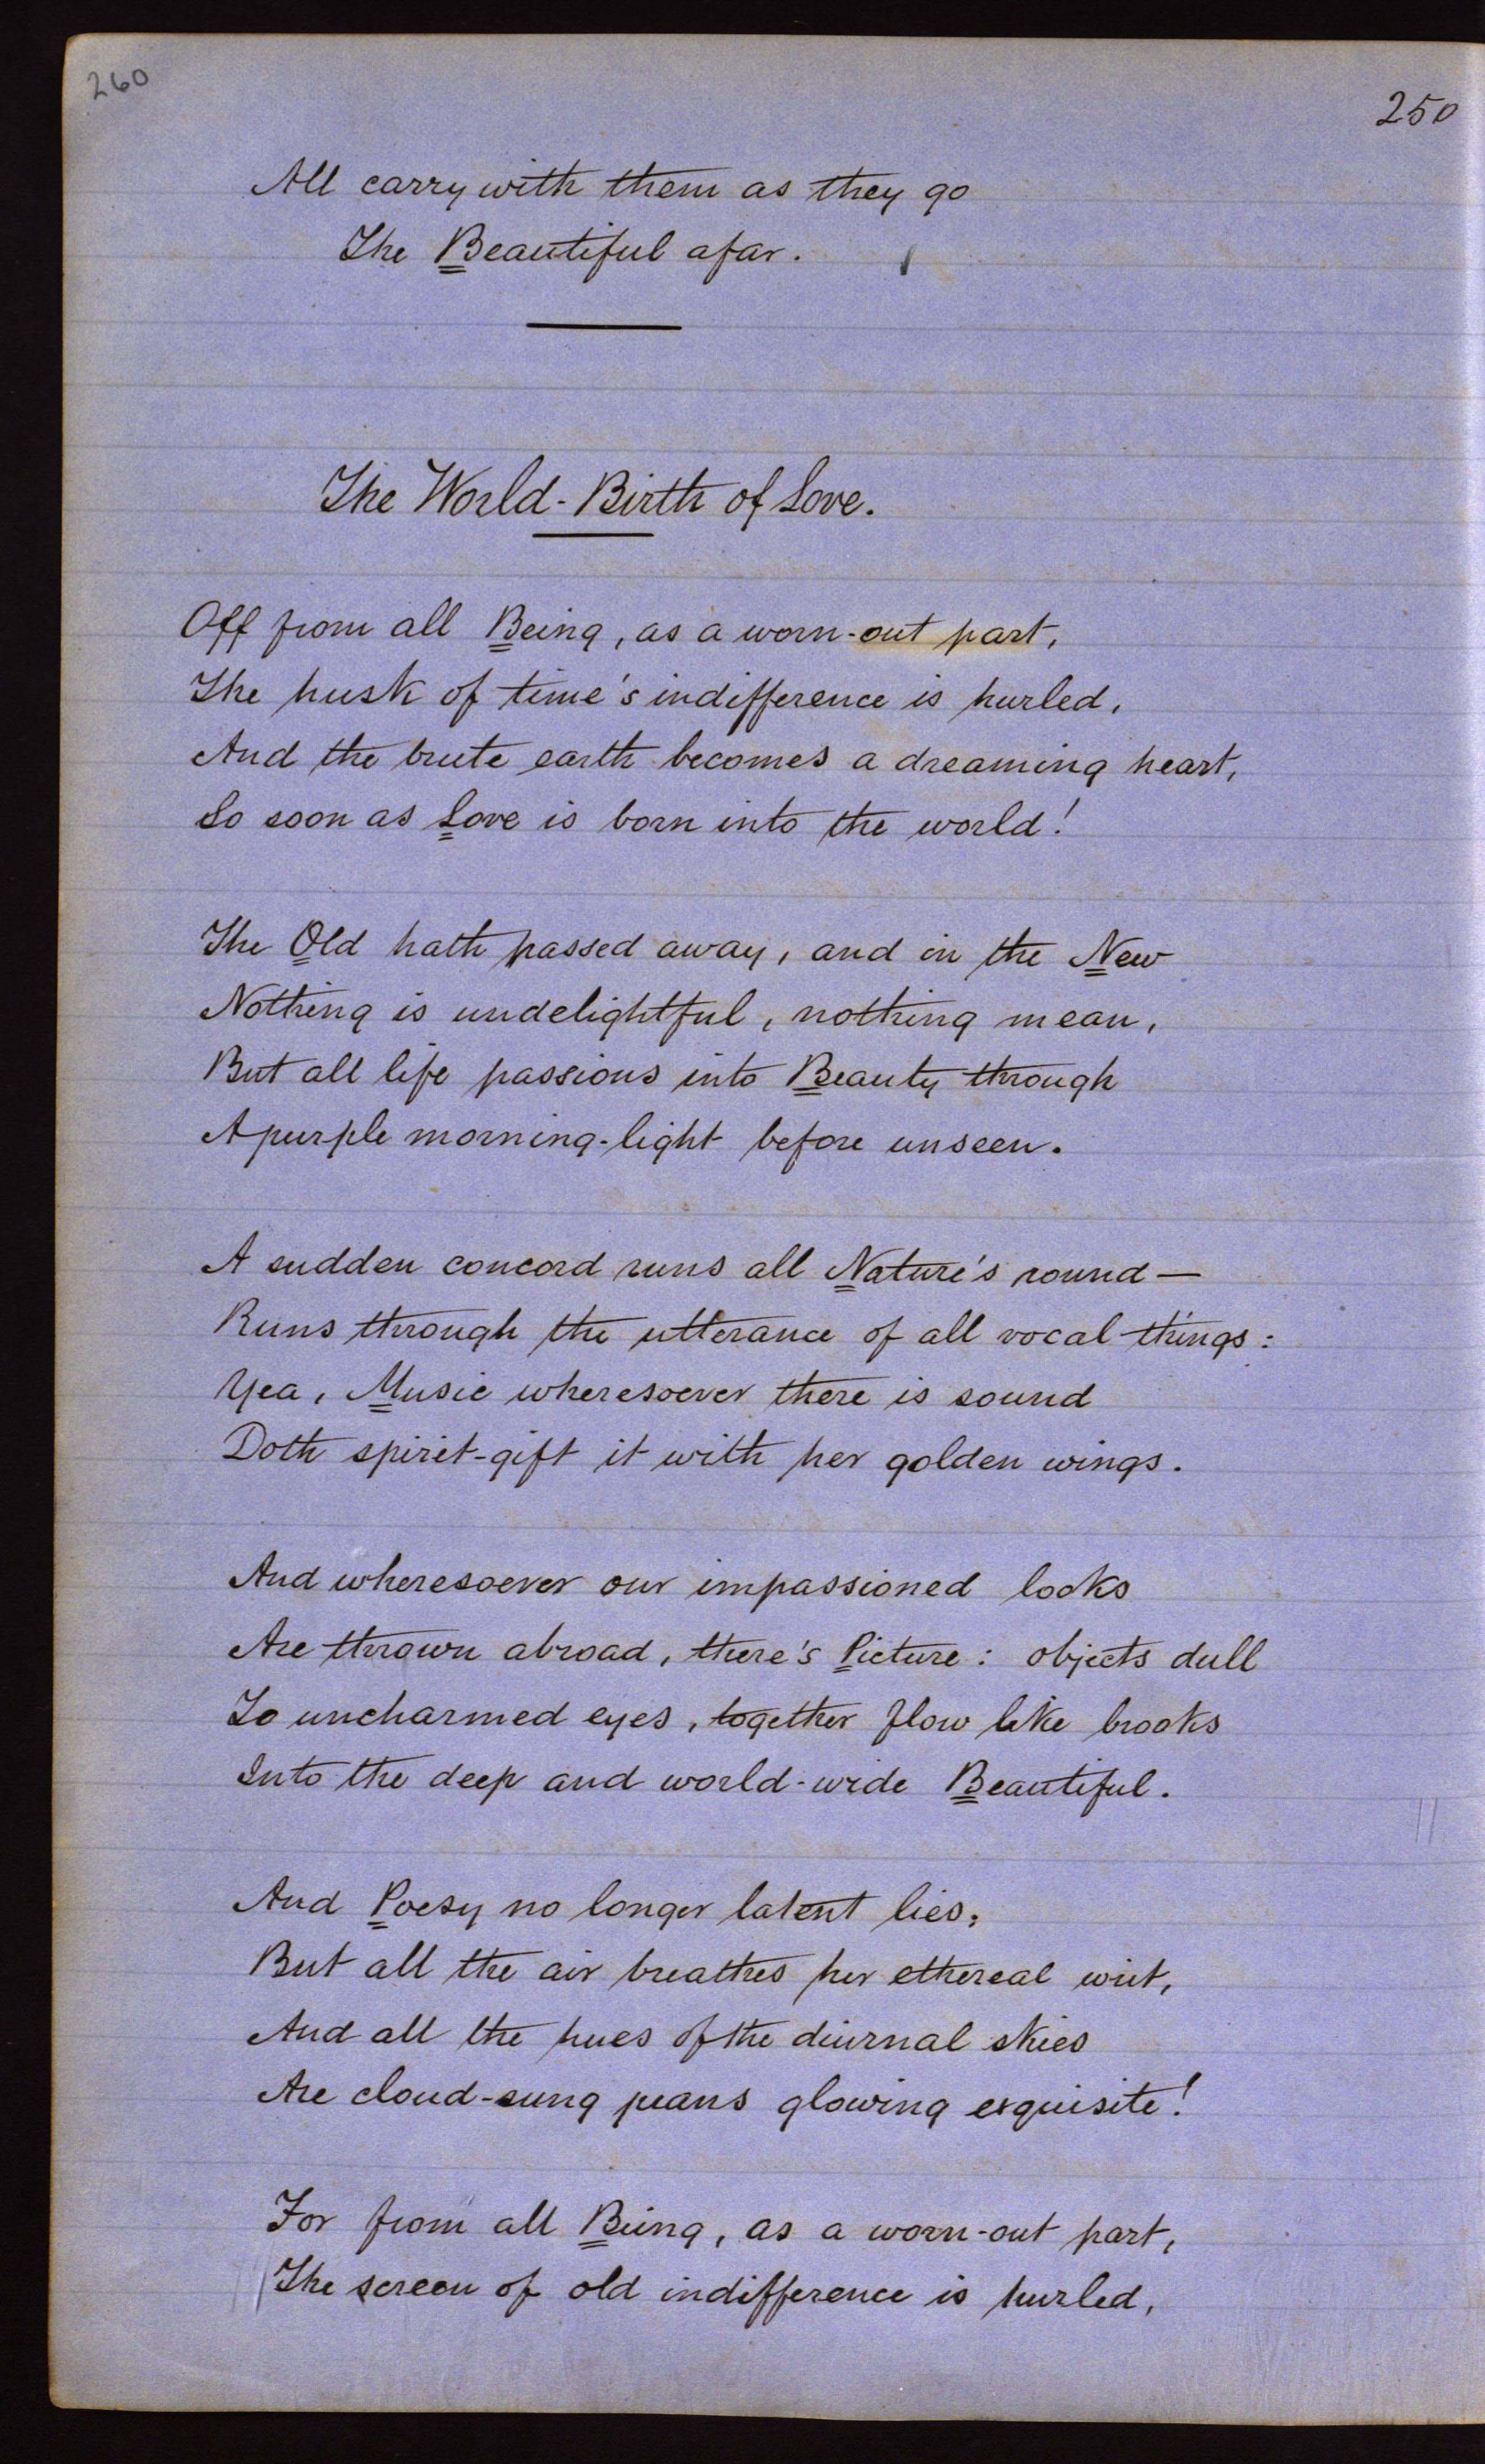 260
250
All carry with them as they go
The Beautiful afar.
The World-Birth of Love.
Off from all Being, as a worn-out part,
The husk of time's indifference is hurled,
And the brute earth becomes a dreaming heart,
So soon as Love is born into the world!
The Old hath passed away, and in the New
Nothing is undelightful, nothing mean,
But all life passions into Beauty through
A purple morning-light before unseen.
A sudden concord runs all Nature's round—
Runs through the utterance of all vocal things:
Yea, Music wheresoever there is sound
Doth spirit-gift it with her golden wings.
And wheresoever our impassioned looks
Are thrown abroad, there's Picture: objects dull
To uncharmed eyes, together flow like brooks
Into the deep and world-wide Beautiful.
And Poesy no longer latent lies,
But all the air breathes her ethereal wit,
And all the hues of the diurnal skies
Are cloud-sung peans glowing exquisite!
For from all Being, as a worn-out part,
The screen of old indifference is hurled,